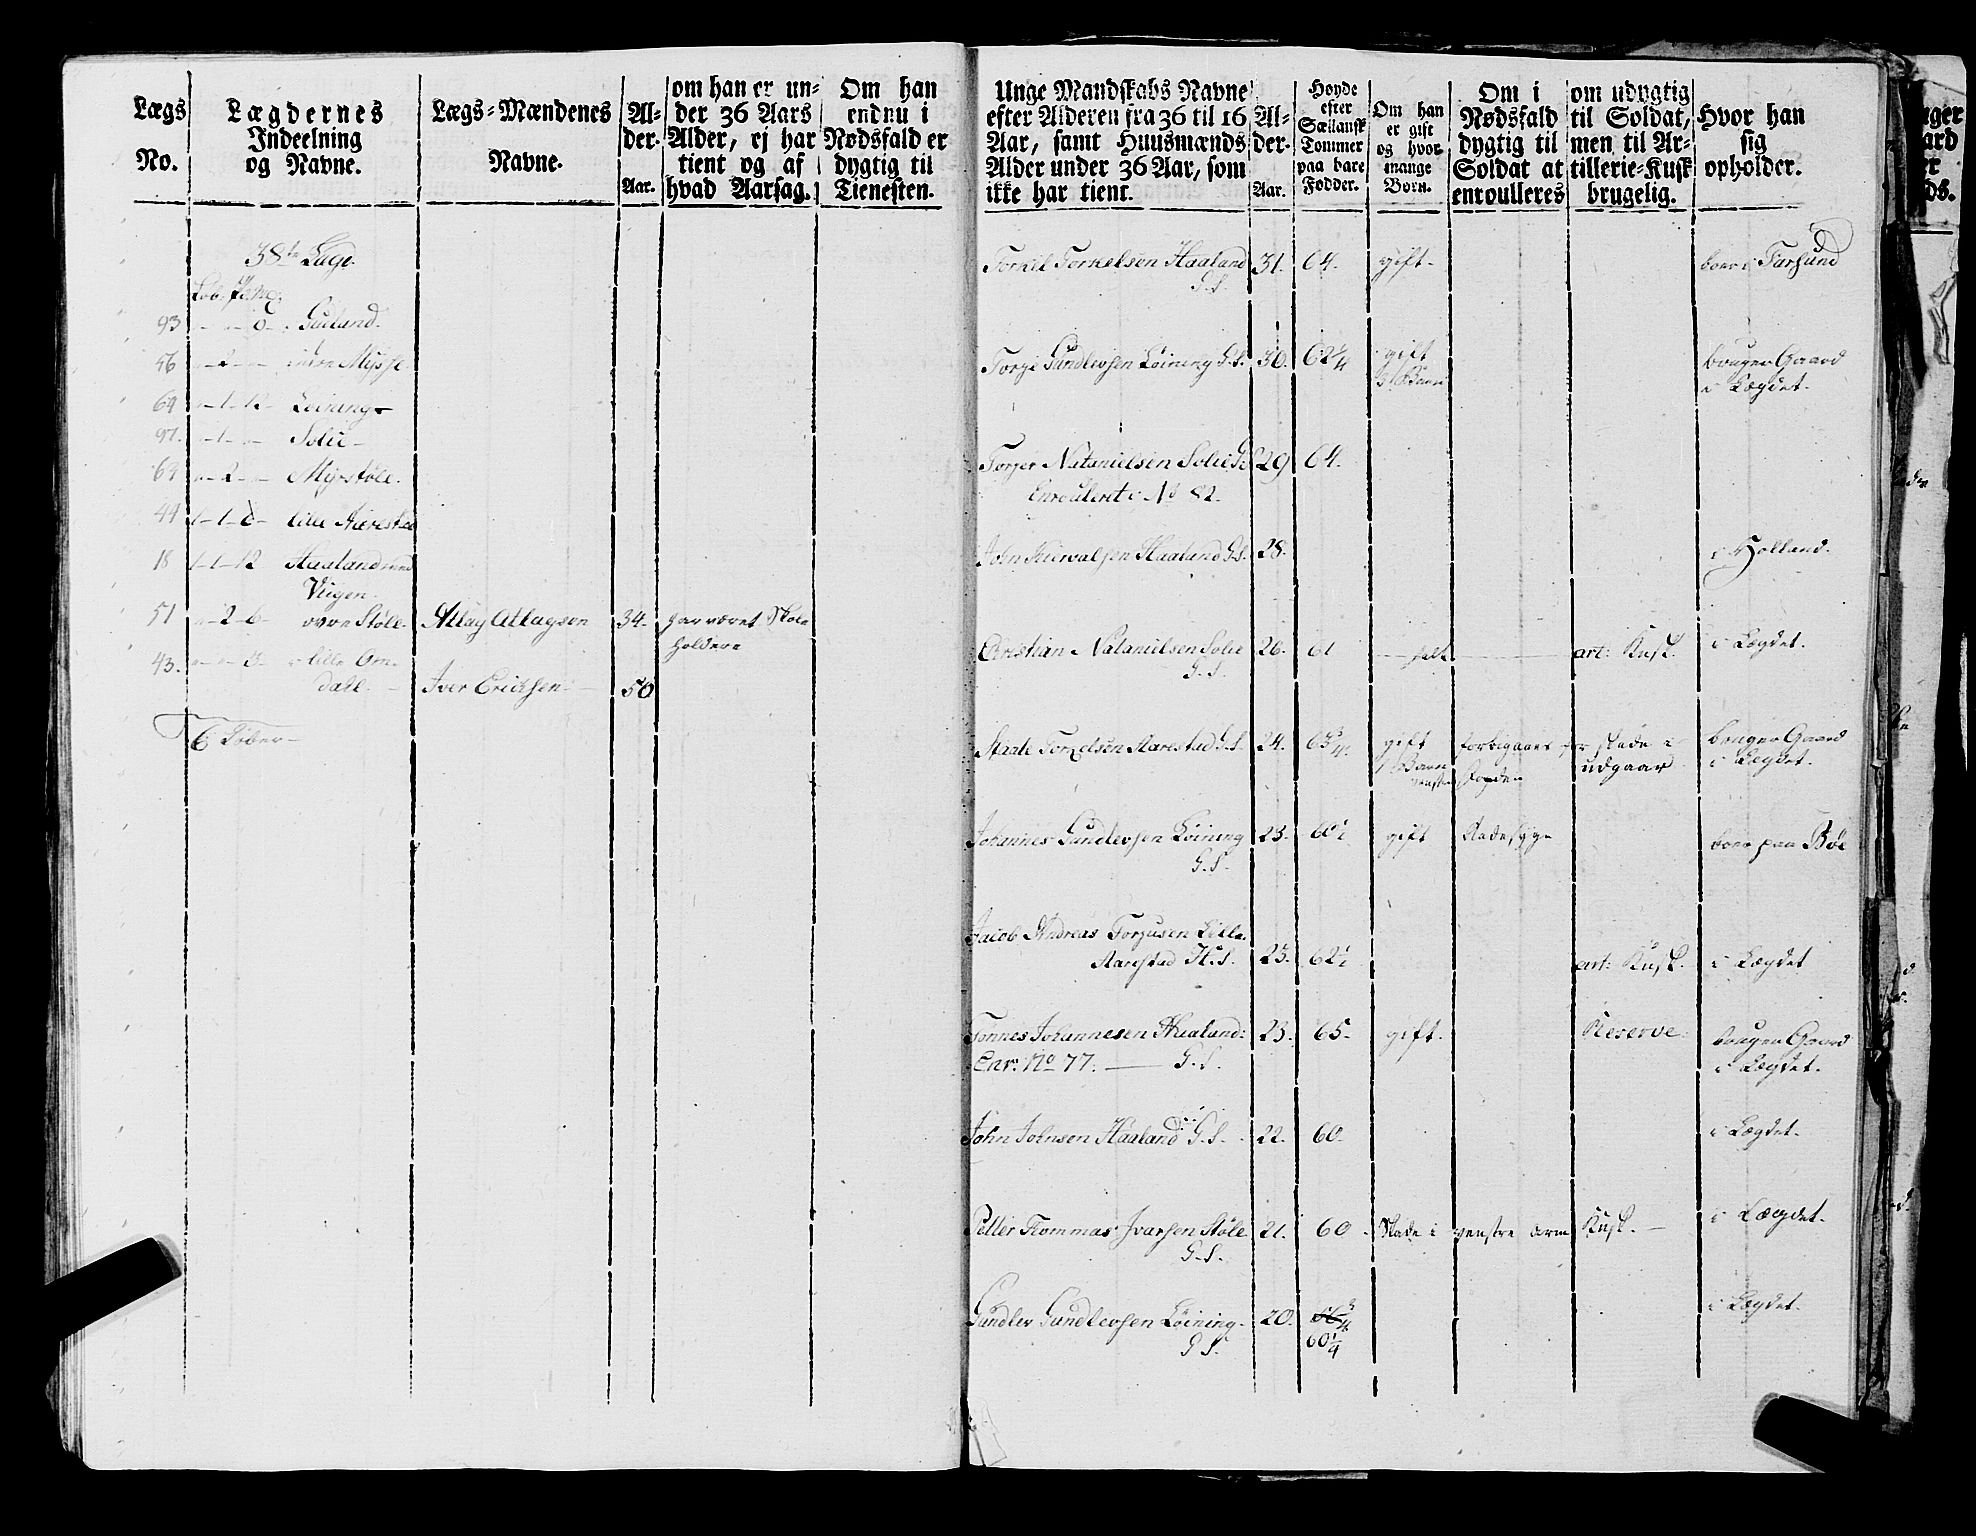 Lægs
No.
Lægdernes
Indeelning
og Navne.
Lægs-Mændenes
Navne.
Al-
der.
Aar.
om han er un-
der 36 Aars
Alder, ej har
tient og af
hvad Aarsag.
Om han
endnu i
Nødsfald er
dygtig til
Tienesten.
38te Læge.
93 Guland.
56 indre Mysse.
64 1-12 Leining
97. 1 Solie
64 2 Myrstøle.
44 1-1-6 lille Aarestad
18 1-1-12 Haaland med
Viigen.
51 2-6 øvre Støle. Atlag Atlagsen 34. har været Skole
holdere
43. 3 lille Om-
dale. Iver Erichsen 50
6 Løber
Unge Mandskabs Navne
efter Alderen fra 36 til 16
Aar, samt Huusmænds
Alder under 36 Aar, som
ikke har tient.
Al-
der.
Aar.
Høyde
efter
Sællansk
Tommer
paa bare
Fødder.
Om han
er gift
og hvor
mange
Børn.
Om i
Nødsfald
dygtig til
Soldat at
enroulleres
om udygtig
til Soldat,
men til Ar-
tillerie-Kusk
brugelig.
Hvor han
sig
opholder.
Torkil Torkelsen Haaland 31. 64. gift. boer i Farsund
G.S.
Torje Gundlevsen Løining G.S. 30. 62 1/4 gift bruger Gaard
3 Børn i Lægdet.
Torjer Natanielsen Solie 29 64.
Enrouleret i No 82.
John Haaland G.S. 28. i Holland.
Christian Natanielsen Solie 26. 61 halt art: Kusk. i Lægdet.
G.S.
Torkelsen Aarestad G.S. 24. 63 3/4. gift forbigaaes for skade i bruger Gaard
1 Barn venstre udgaar i Lægdet.
Johannes Gundlevsen Løining 23. 60 1/2 gift Radesyge boer paa Bøe
G.S.
Jacob Andreas Torjusen Lille
Aarestad H.S. 23. 62 1/2 art: Kusk. i Lægdet
Tønnes Johannesen Haaland: 23. 65. gift. Reserve. bruger Gaard
Enr: No 77. G.S. i Lægdet.
John Johnsen Haaland G.S. 22. 60. i Lægdet.
Petter Tommas Ivarsen Støle 21. 60 Skade i venstre arm Kusk. i Lægdet.
G.S.
Gundlev Gundlevsen Løining. 20. i Lægdet.
G.S. 60 1/4